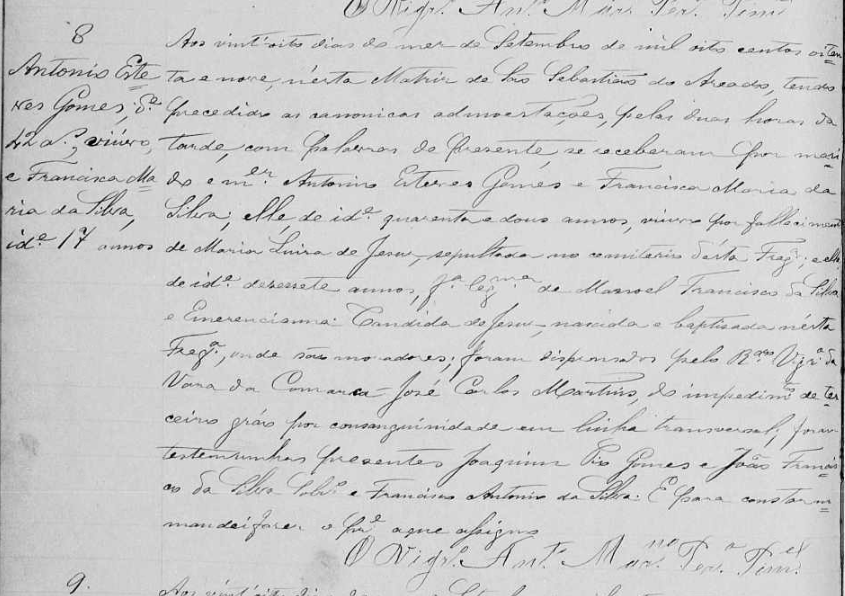 O Vigr.º Ant.º Mar. Per. Pim.el
8
Antonio Este=
ves Gomes, id.e
42 a.s, viúvo,
e Francisca Ma=
ria da Silva,
id.e 17 annos
Aos vint'oito dias do mez de Setembro de mil oito centos oiten=
ta e nove, n'ésta Matriz de São Sebastião do Areado, tendo
precedido as canonicas admoestações, pelas duas horas da
tarde, com palavras de presente, se receberam por mari=
do e m.er Antonio Esteves Gomes e Francisca Maria da
Silva; elle, de id.e quarenta e dous annos, viuvo por fallecimento
de Maria Luiza de Jesus, sepultada no cemiterio d'ésta Freg.ª; e ella,
de id.e dezessete annos, f.ª leg.ma de Manoel Francisco da Silva
e Emerenciana Candida de Jesus, nascida e baptisada n'ésta
Freg.ª, onde são moradores; foram dispensados pelo R.do Vigr.º da
Vara da Comarca José Carlos Martins, do impedim.to de ter=
ceiro gráo por consanguinidade em linha transversal; foram
testemunhas presentes Joaquim Pio Gomes e João Francis=
co da Silva Sobr.º e Francisco Antonio da Silva. E para constar
mandei fazer o pr.e a que assigno
O Vigr.º Ant.º Mar.no Per.ª Pim.el
9.
Aos vint'oito dias do